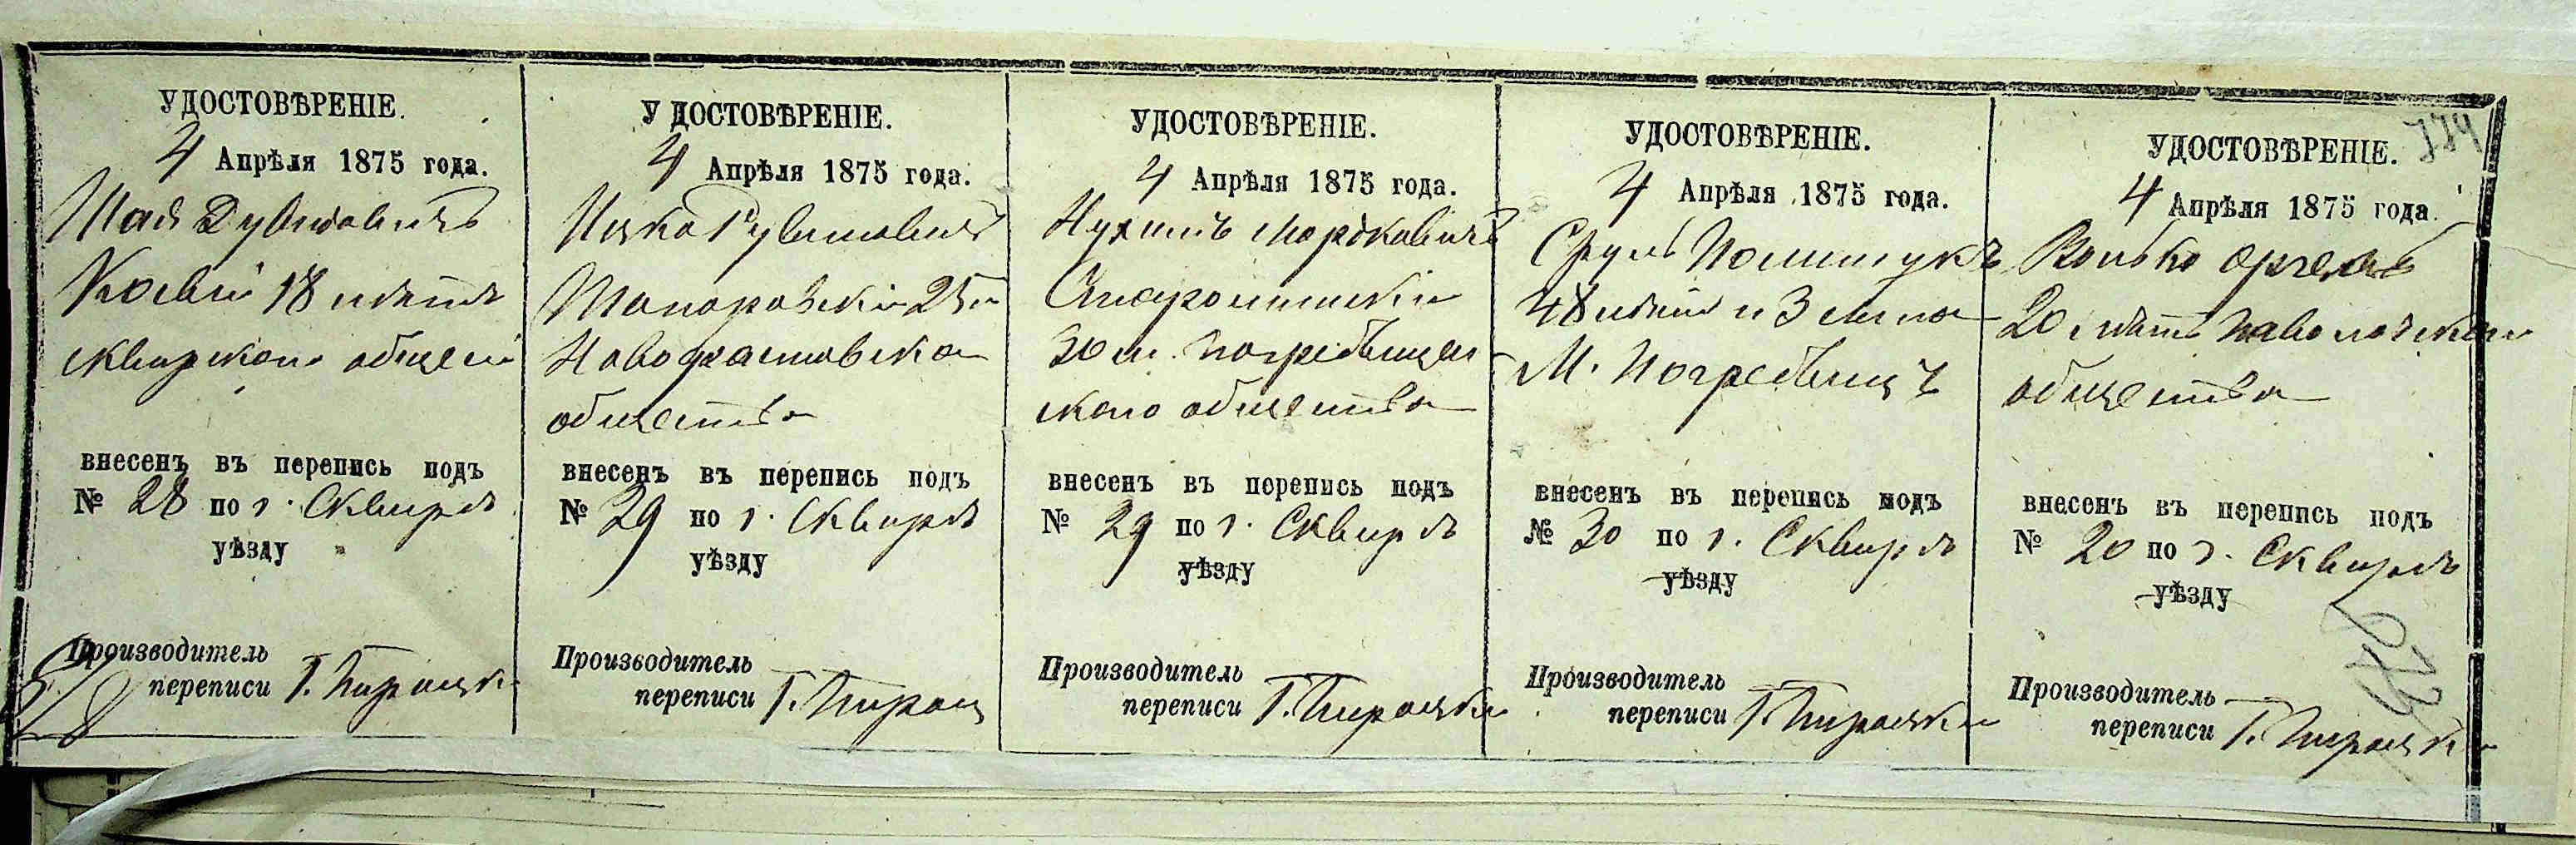 УДОСТОВѢРЕНІЕ.
4 Апрѣля 1875 года.
Шая Дувидовичъ
18 лѣтъ
сквирскаго
внесенъ въ перепись подъ
№ 28 по г. Сквирѣ
уѣзду
Производитель
переписи Г.
УДОСТОВѢРЕНІЕ.
4 Апрѣля 1875 года.
Ицко Рувимовичъ
Топоровскій 25 л
общества
внесенъ въ перепись подъ
№ 29 по г. Сквирѣ
уѣзду
Производитель
переписи Г.
УДОСТОВѢРЕНІЕ.
4 Апрѣля 1875 года.
Нухимъ Мордковичъ
30 л. погребищен
скаго общества
внесенъ въ перепись подъ
№ 29 по г. Сквирѣ
уѣзду
Производитель
переписи Г.
УДОСТОВѢРЕНІЕ.
4 Апрѣля 1875 года.
Сруль Полищукъ
48 лѣтъ и 3
М. Погребищъ
внесенъ въ перепись подъ
№ 30 по г. Сквирѣ
уѣзду
Производитель
переписи Г.
УДОСТОВѢРЕНІЕ.
4 Апрѣля 1875 года.
Волько
20 лѣтъ паволочскаго
общества
внесенъ въ перепись подъ
№ 20 по г. Сквирѣ
уѣзду
Производитель
переписи Г.